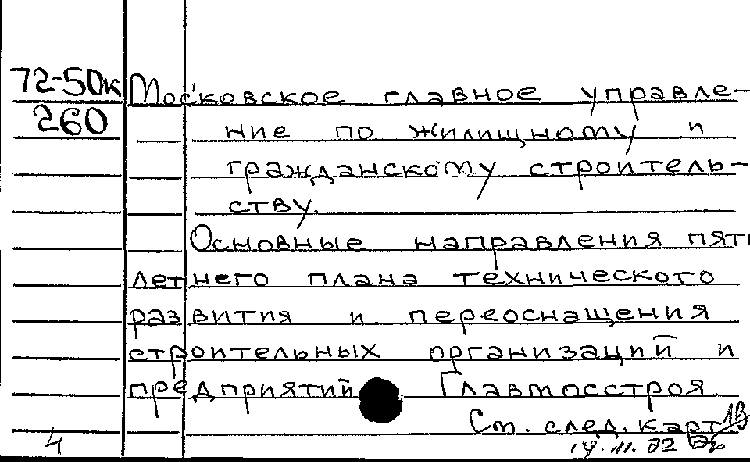 72-50к
260
Московское главное управле-
ние по жилищному и
гражданскому строитель-
ству.
Основные направления пяти
летнего плана технического
развития и переоснащения
строительных организаций и
предприятий Главмосстроя
См. след. карт
4